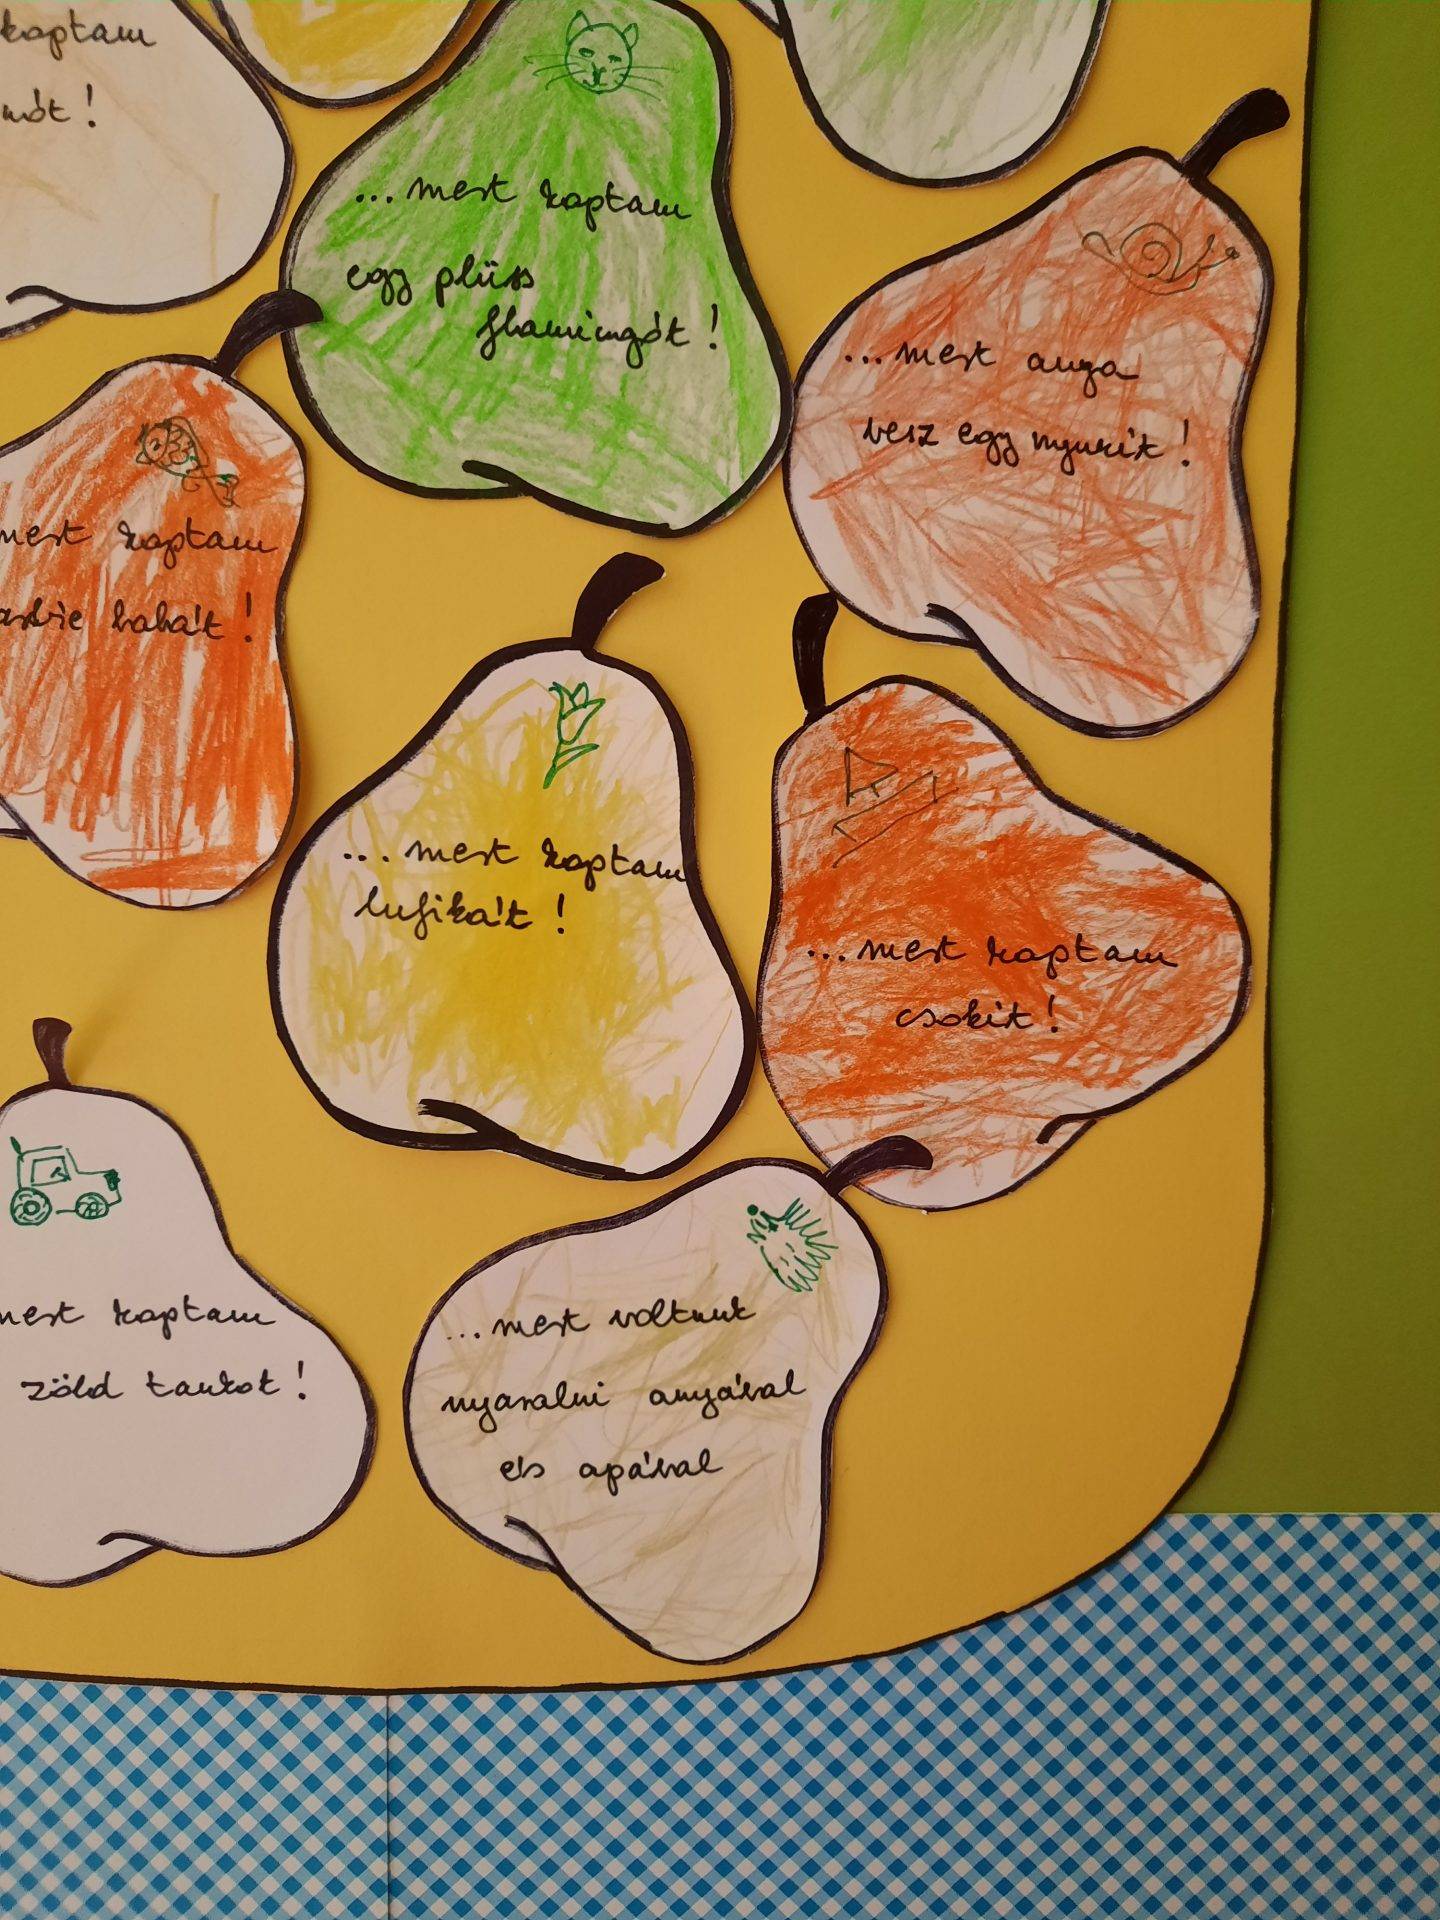 kaptam
... mert kaptam
egy plüss
flamingót!
... mert anya
vesz egy nyuszit!
mert kaptam
barbie babát!
... mert kaptam
lufikát!
... mert kaptam
csokit!
mert kaptam
zöld tankot!
... mert voltunk
nyaralni anyával
és apával